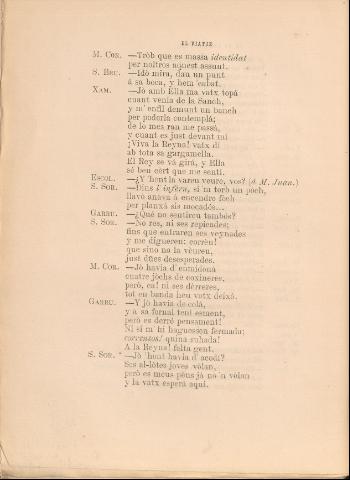 EL VIATJE
M. COR. —Tròb que es massa identidat
per noltros aquest assunt.
S. BRU. —Idò mira, dau un punt
á sa boca, y hem cabat.
XAM. —Jò amb Ella ma vatx topá
cuant venía de la Sanch,
y m' enfil demunt un banch
per poderla contemplá;
de lo mes ran me passá,
y cuant es just devant mi
¡Viva la Reyna! vatx dí
ab tota sa gargamella.
El Rey se vá girá, y Ella
sé ben cért que me sentí.
ESCOL. —¿Y 'hent la varen veure, vos? (á M. Juan.)
S. SOR. —Dins l' infern, si m torb un póch,
llavó anava á encendre fòch
per planxá sis mocadós...
GARRU. —¿Qué no sentireu tambós?
S. SOR. —No res, ni ses repicades;
fins que entraren ses veynades
y me digueren: corrèu!
que sino na la véureu,
just dües desesperades.
M. COR. —Jò havia d' enmidoná
cuatre jòchs de coxineres.
però, ca! ni ses dèrreres,
tot en banda heu vatx deixá.
GARRU. —Y jò havía de colá,
y a sa fornal tent esment,
però es derré pensament!
Ni si m' hi haguessen fermada;
corrensos! quina suhada!
A la Reyna! falta gent.
S. SOR. —Jò 'hont havia d' acodí?
Ses al-lòtes joves vòlan,
però es meus pèus já na 'n vòlan
y la vatx esperá aquí.